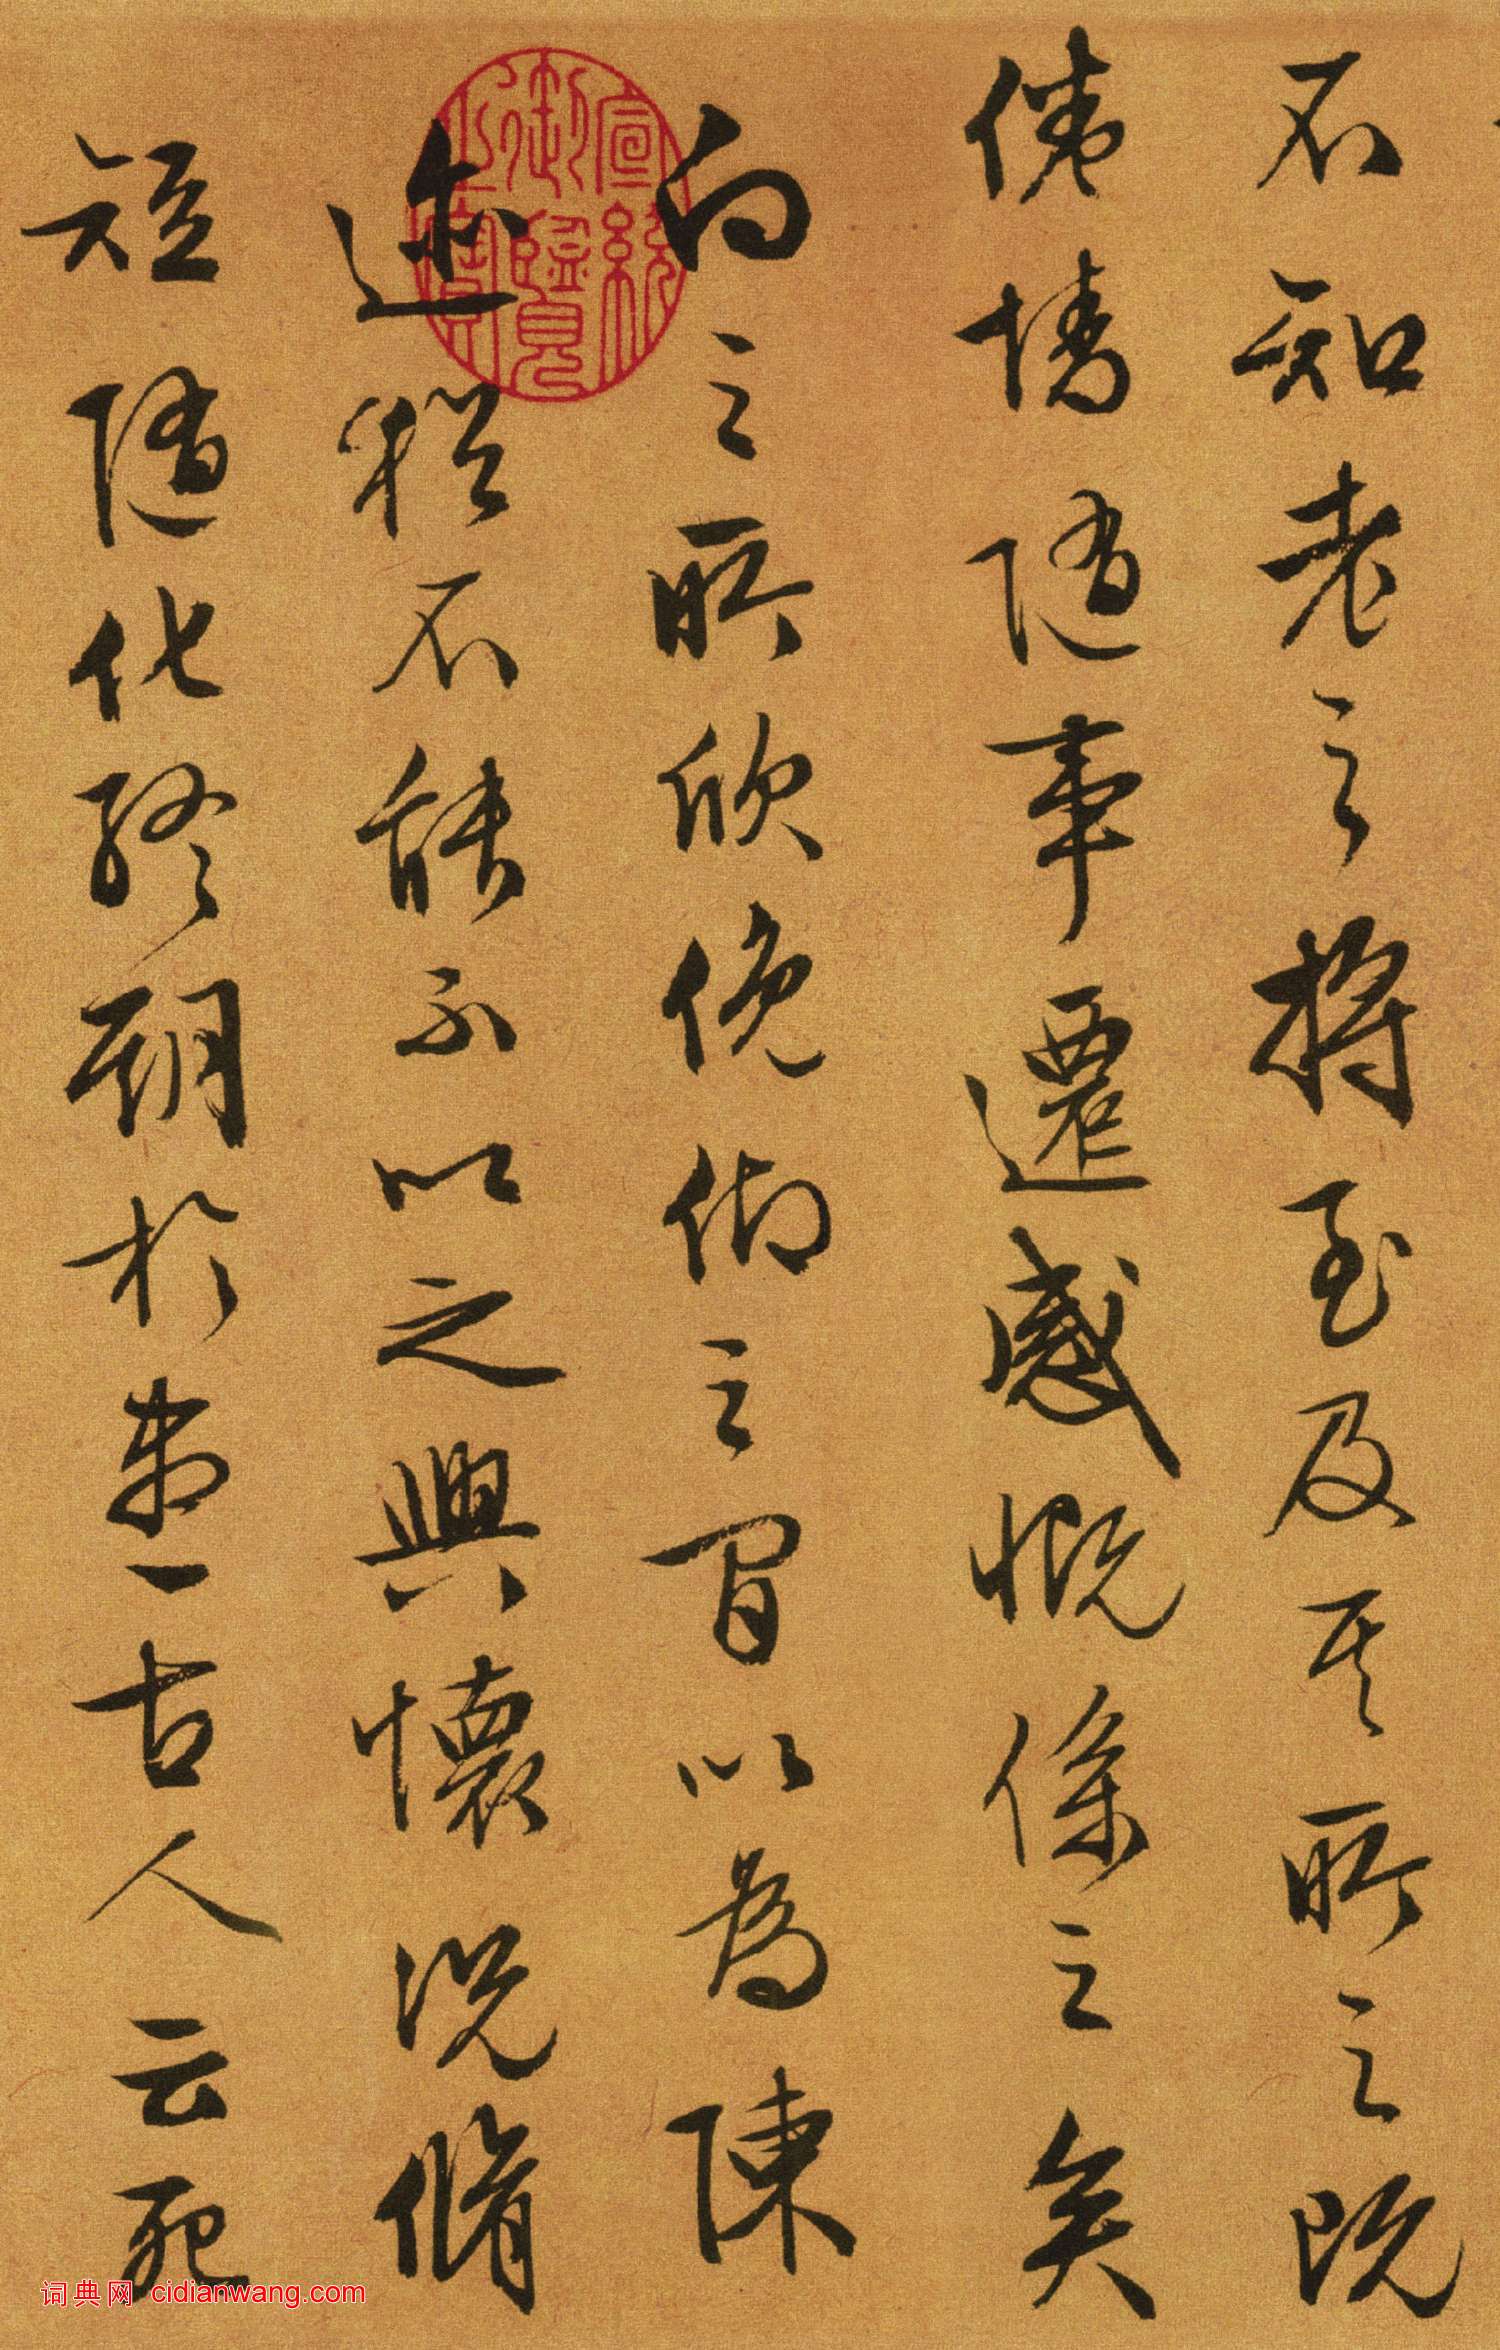 不知老之將至及其所之既
倦情隨事遷感慨係之矣
向之所欣俛仰之閒以為陳
迹猶不能不以之興懷況脩
短隨化終期於盡古人云死
宣統御覽之寶
词典网 cidianwang.com